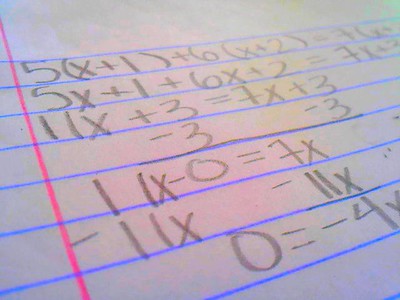 5(x+1)+6(x+2)=7(x+
5x+1+6x+2=7x+3
11x+3=7x+3
-3 -3
11x-0=7x
-11x -11x
0=-4x